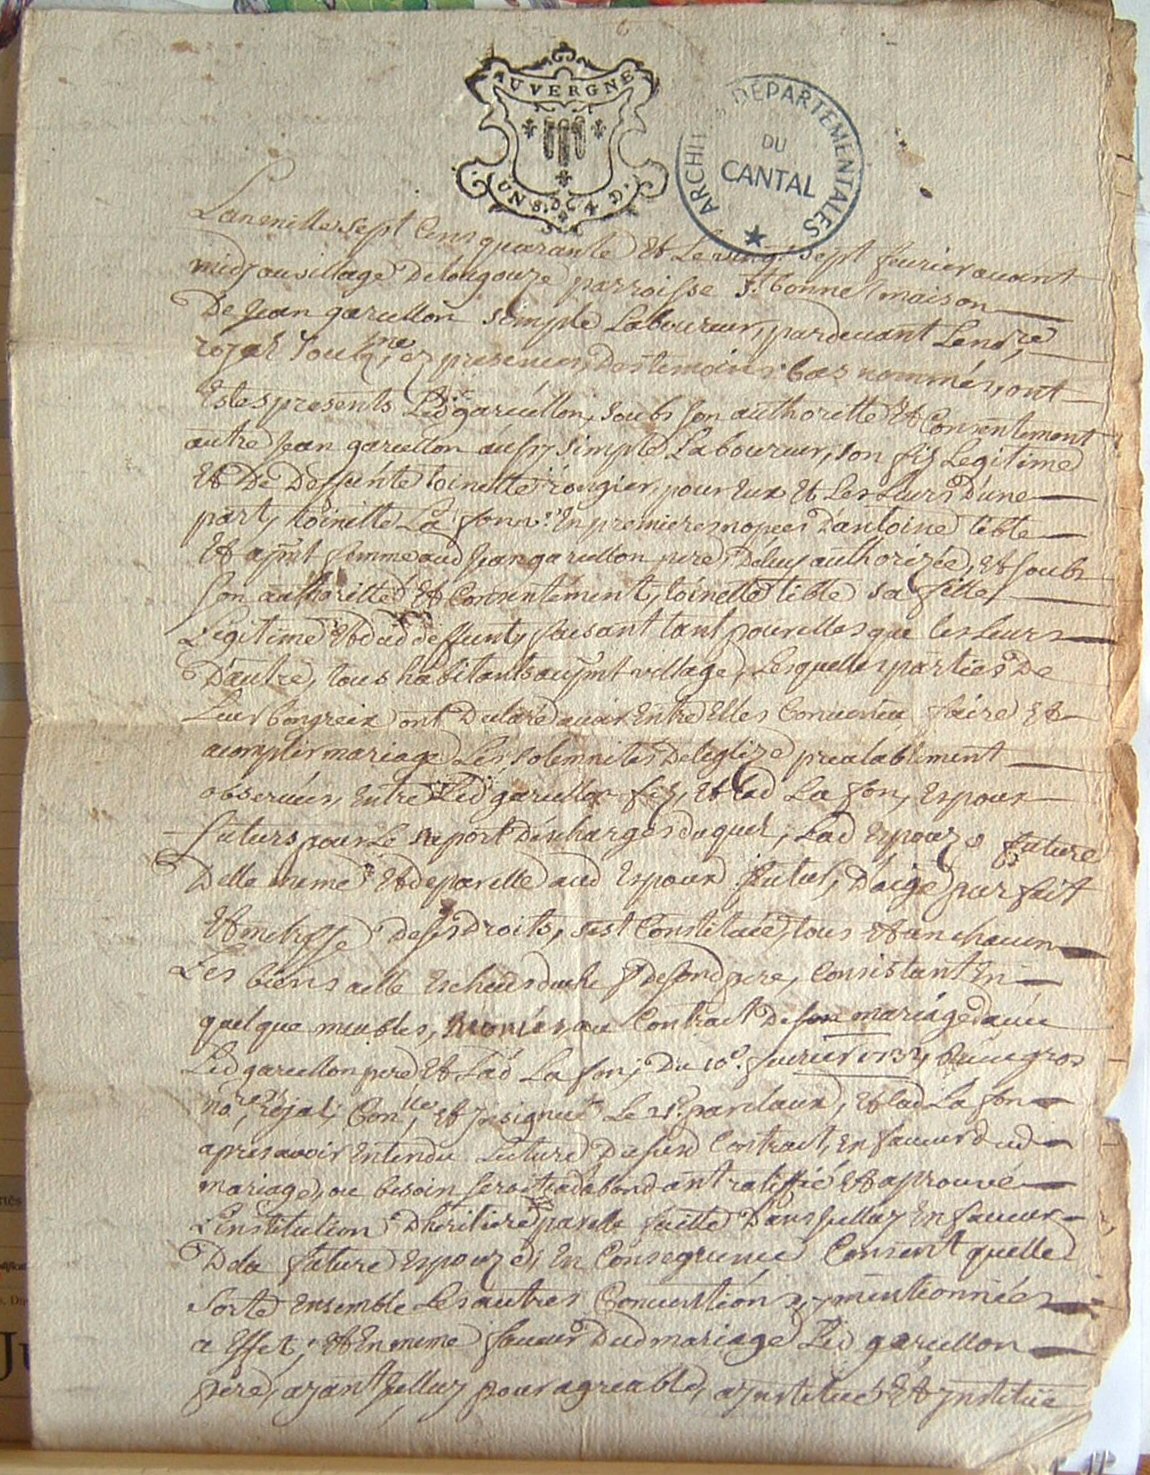 AUVERGNE
ARCHI S DÉPARTEMENTALES
DU
CANTAL
Lan mille sept Cens quarante Et Le vingt sept fevrier avant
midy au village De lougouze parroisse St bonnet maison
De Jean garcellon simple Laboureur, pardevant Le nore
royal Soubzne, ez presences Des temoins bas nommés, ont
Estes presents Led garcellon, soubs son authoritté Et Consentement
autre Jean garcellon aussy simple Laboureur, son fiz Legitime
Et De Deffunte toinette rongier, pour Eux Et Les Leurs D'une
part, toinette La fonn En premieres nopces D'antoine tible
Et apnt femme aud Jean garcellon pere, De luy authorizée, Et soubs
son authoritté Et Consentement, toinette tible sa fille
Legitime Et dud deffunt, faisant tant pour elles que les Leurs
D'autre, tous habitants aupnt village, Lesquelles parties De
Leur bongreix ont Declaré avoir Entre Elles Convenu faire Et
acomplir mariage Les solemnites De leglize prealablement
observées, Entre Led garcellon fiz, Et Lad La fon, Espoux
futurs pour Le suport Des charges duquel, Lad Espouze future
Delle meme Et de pareille aud Espoux futur, D'aige parfait
Et metresse De ses Droits, s'est Constituée, tous Et un chacun
Les biens a elle Escheus du De fond pere, Consistant En
quelque meubles, au Contract De son mariage avec
Led garcellon pere Et Lad La fon, Du 10e fevrier 1732, Reçu gros
nore royal, Conlle, Et Le 21e par Et lad La fon
apres avoir Entendu Lecture Dususd Contract, En faveur dud
mariage, ou besoin seroit dabondant ratiffié Et aprouvé
L'institution D'heritiere par elle faitte Dans jcelluy En faveur
De la future Espouze, En Consequence Consent quelle
sorte Ensemble Les autres Conventions y mentionnées
a Effet, Et En meme faveur Dud mariage Led garcellon
pere, ayant jcelluy pour agreable, a jnstitué Et jnstitue